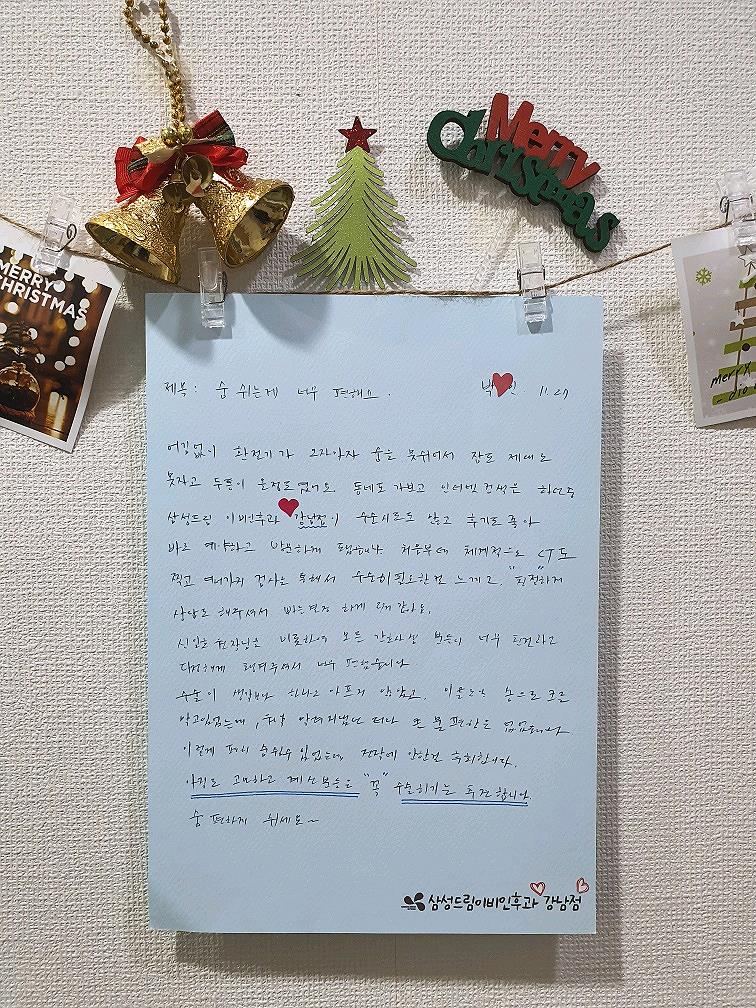 Merry
Christmas
MERRY
CHRISTMAS
merry
제목: 숨 쉬는게 너무 편해요. 박 11.27
어김없이 환절기가 다가 숨을 못쉬어서 잠도 제대로
못자고 두통이 올정도였어요. 동네도 가보고 인터넷 검색은 하던중
삼성드림 이비인후과 강남점이 수술시도도 많고 후기도 좋아
바로 예약하고 방문하게 됩습니다. 처음부터 체계적으로 CT도
찍고 여러가지 검사를 통해서 수술이 필요한걸 느끼고, "친절하게"
상담도 해주셔서 바로 결정 하게 된거 같아요.
원장님을 비롯하여 모든 간호사 분들이 너무 친절하고
다정하게 챙겨주셔서 너무 편했습니다
수술이 생각보다 하나도 아프지 않았고, 이틀동안 솜으로 코를
막고있었는데, 더 불편함은 없었습니다
이렇게 편히 숨쉴수 있었는데 진작에 안한걸 후회합니다.
아직도 고민하고 계신분들은 "꼭" 수술하기를 추천합니다
숨 편하게 쉬세요~
삼성드림이비인후과 강남점